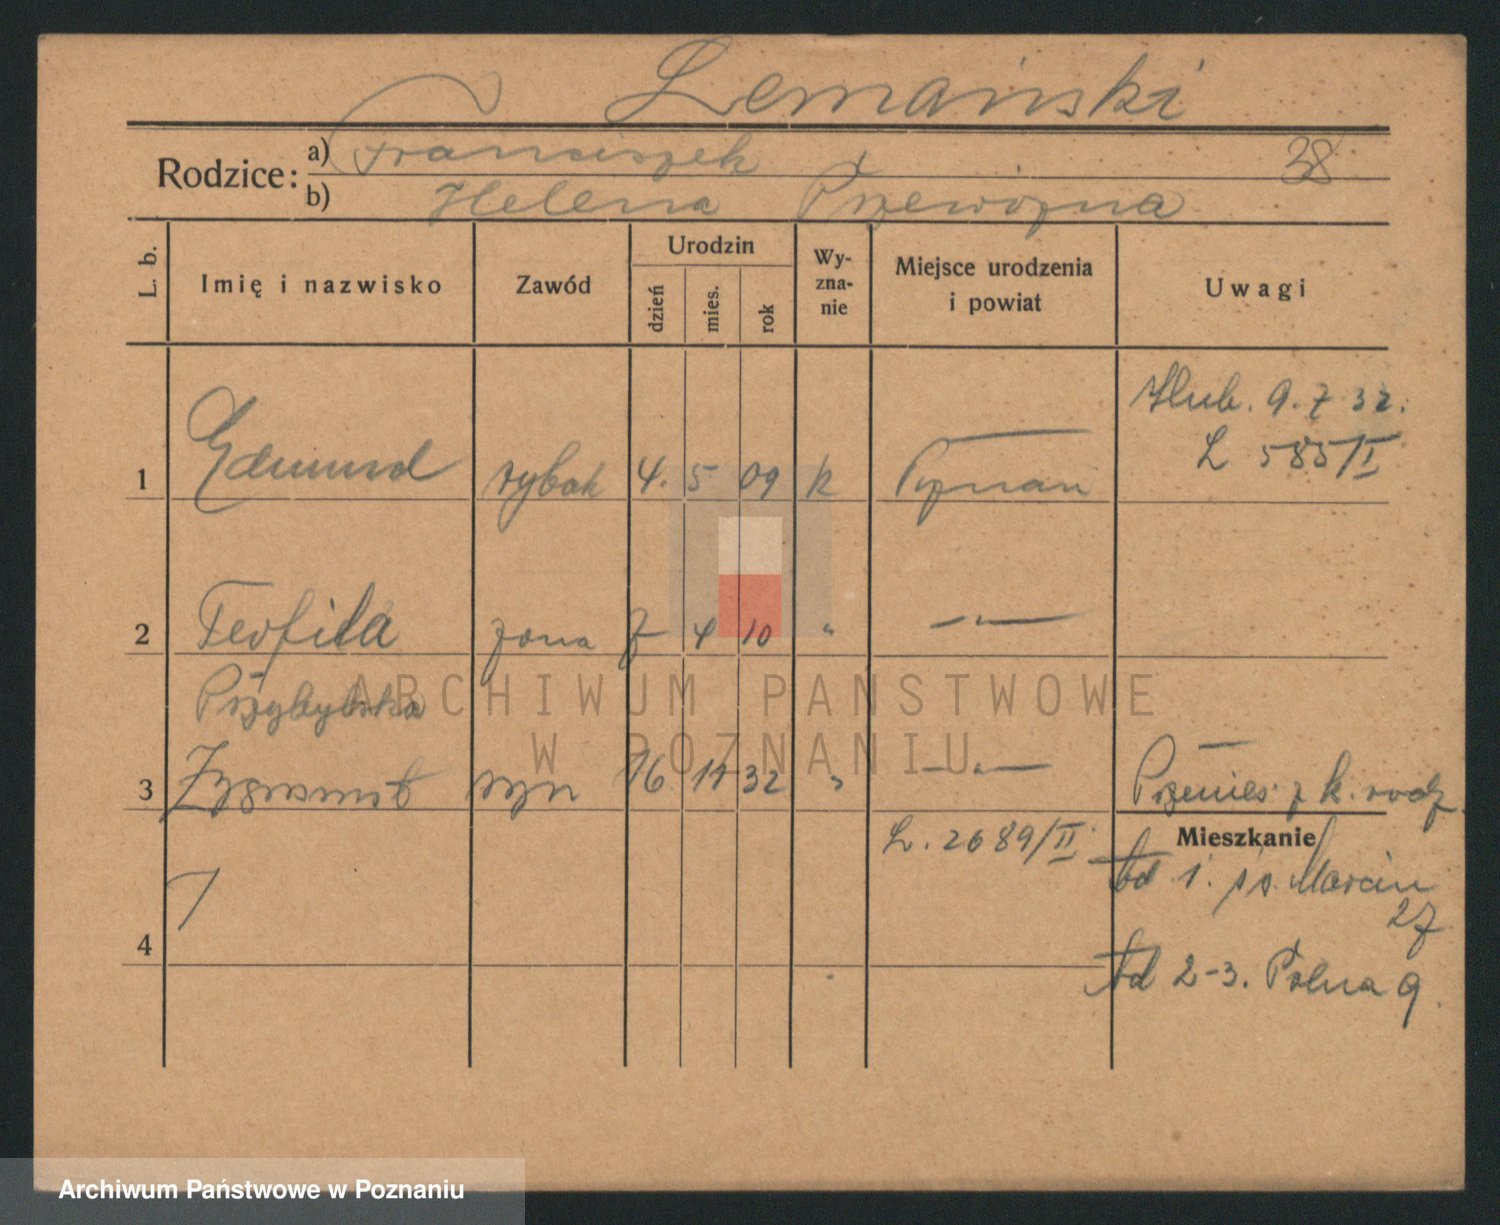 Lemański
Rodzice: a) Franciszek 38
b) Helena Przewoźna
L. b. Imię i nazwisko Zawód Urodzin dzień mies. rok Wy-zna-nie Miejsce urodzenia i powiat Uwagi
ślub. 9. 7 32.
L 585/I
1 Edmund rybak 4. 5 09 k Poznań
2 Teofila żona 7 4 10 " —"—
Przybylska
3 Zygmunt syn 16 11 32 " —"— Przenies. z k. rodz.
L. 2689/II Mieszkanie
od 1. św. Marcin
27
4
od 2-3. Polna 9.
ARCHIWUM PAŃSTWOWE
W POZNANIU
Archiwum Państwowe w Poznaniu